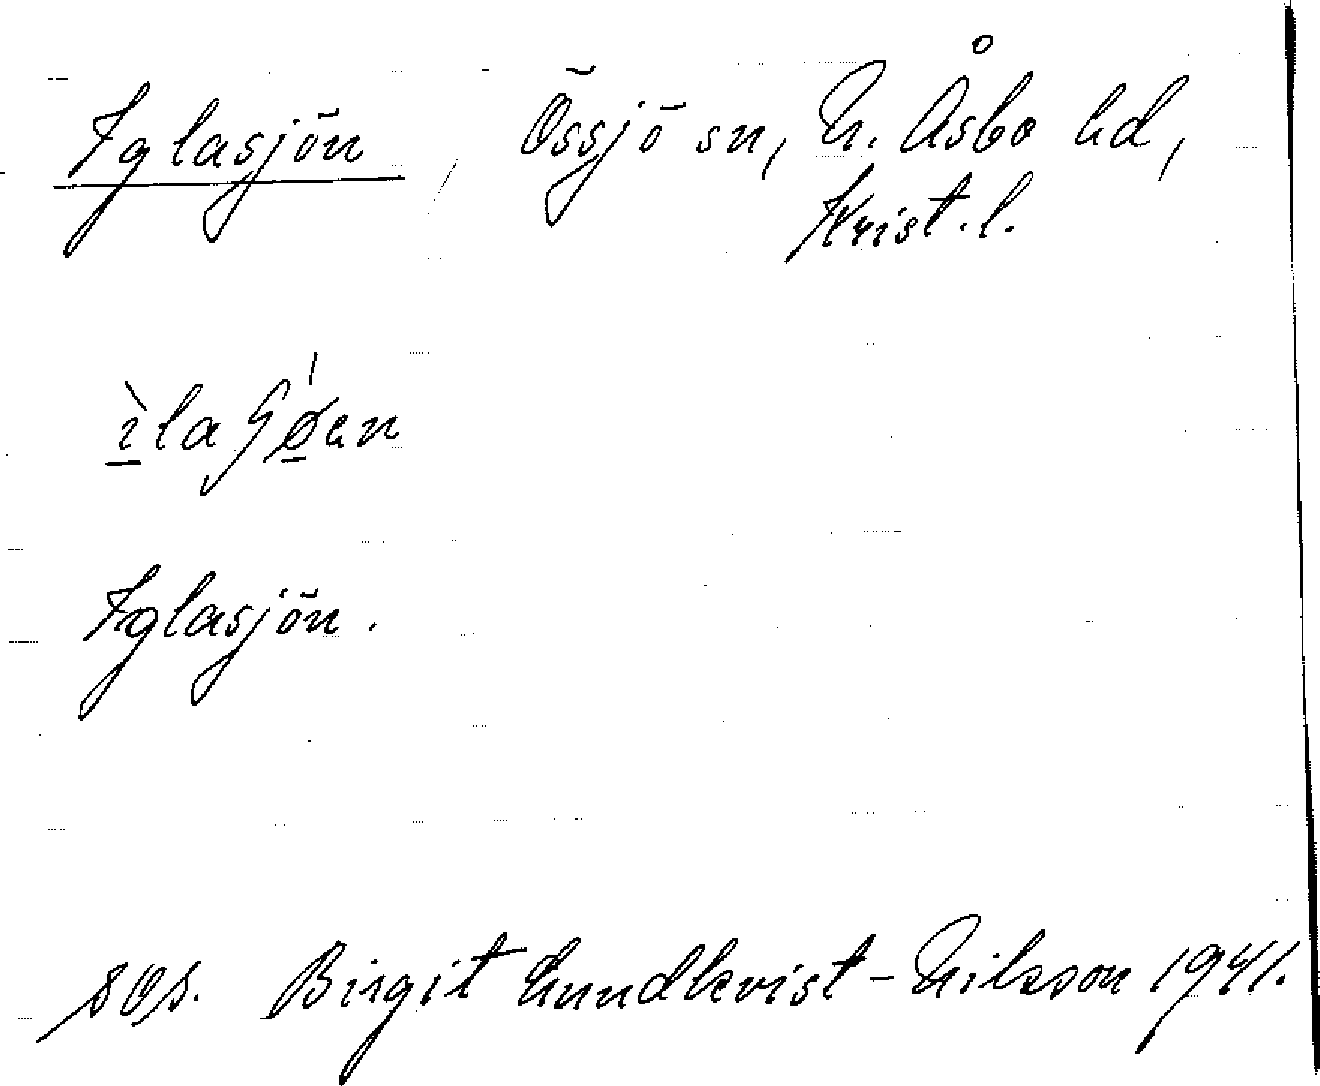 Iglasjön, Össjö sn, N. Åsbo hd,
Krist. l.
Iglasjön.
sos. Birgit Lundkvist-Nilsson 1941.